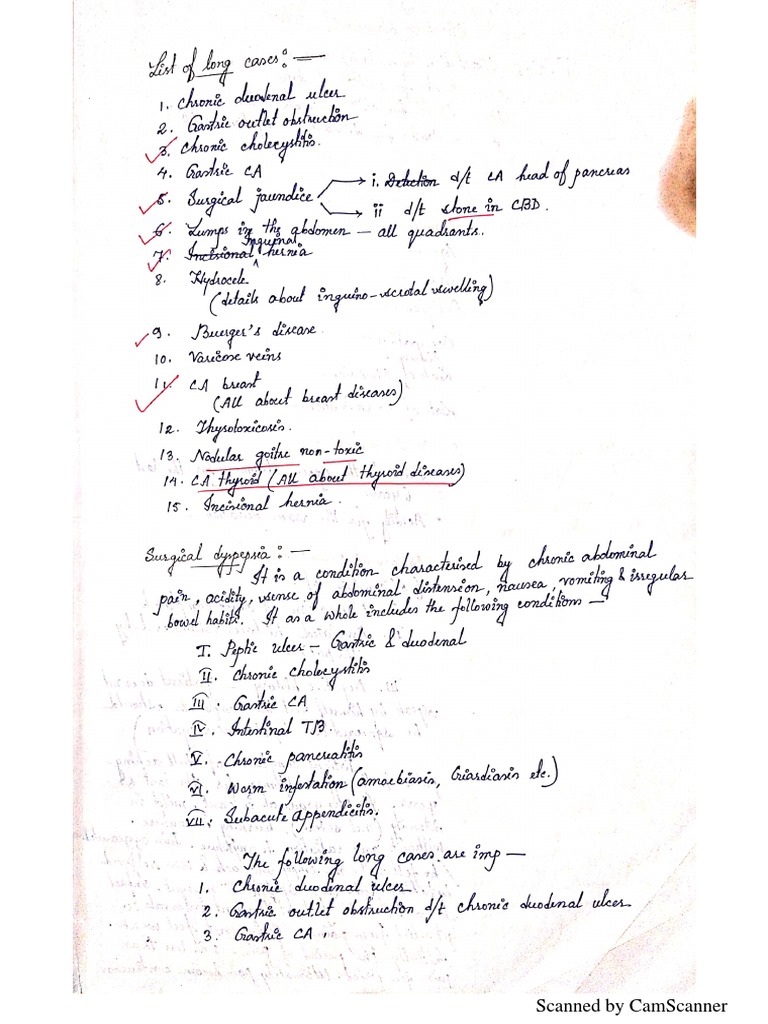 List of long cases:—
1. Chronic duodenal ulcer
2. Gastric outlet obstruction
3. Chronic cholecystitis.
4. Gastric CA
5. Surgical jaundice → i. Detection d/t CA head of pancreas
→ ii d/t stone in CBD.
6. Lumps in the abdomen — all quadrants.
Inguinal
7. Incisional ^ hernia
8. Hydrocele
(details about inguino-scrotal swelling)
9. Buerger's disease.
10. Varicose veins
11. CA breast
(All about breast diseases)
12. Thyrotoxicosis.
13. Nodular goitre non-toxic
14. CA thyroid (All about thyroid diseases)
15. Incisional hernia.
Surgical dyspepsia:—
It is a condition characterised by chronic abdominal
pain, acidity, sense of abdominal distension, nausea, vomiting & irregular
bowel habits. It as a whole includes the following conditions —
I. Peptic ulcer – Gastric & duodenal
II. Chronic cholecystitis
III. Gastric CA
IV. Intestinal TB.
V. Chronic pancreatitis
VI. Worm infestation (amoebiasis, Giardiasis etc.)
VII. Subacute appendicitis.
The following long cases are imp —
1. Chronic duodenal ulcer
2. Gastric outlet obstruction d/t chronic duodenal ulcer
3. Gastric CA.
Scanned by CamScanner